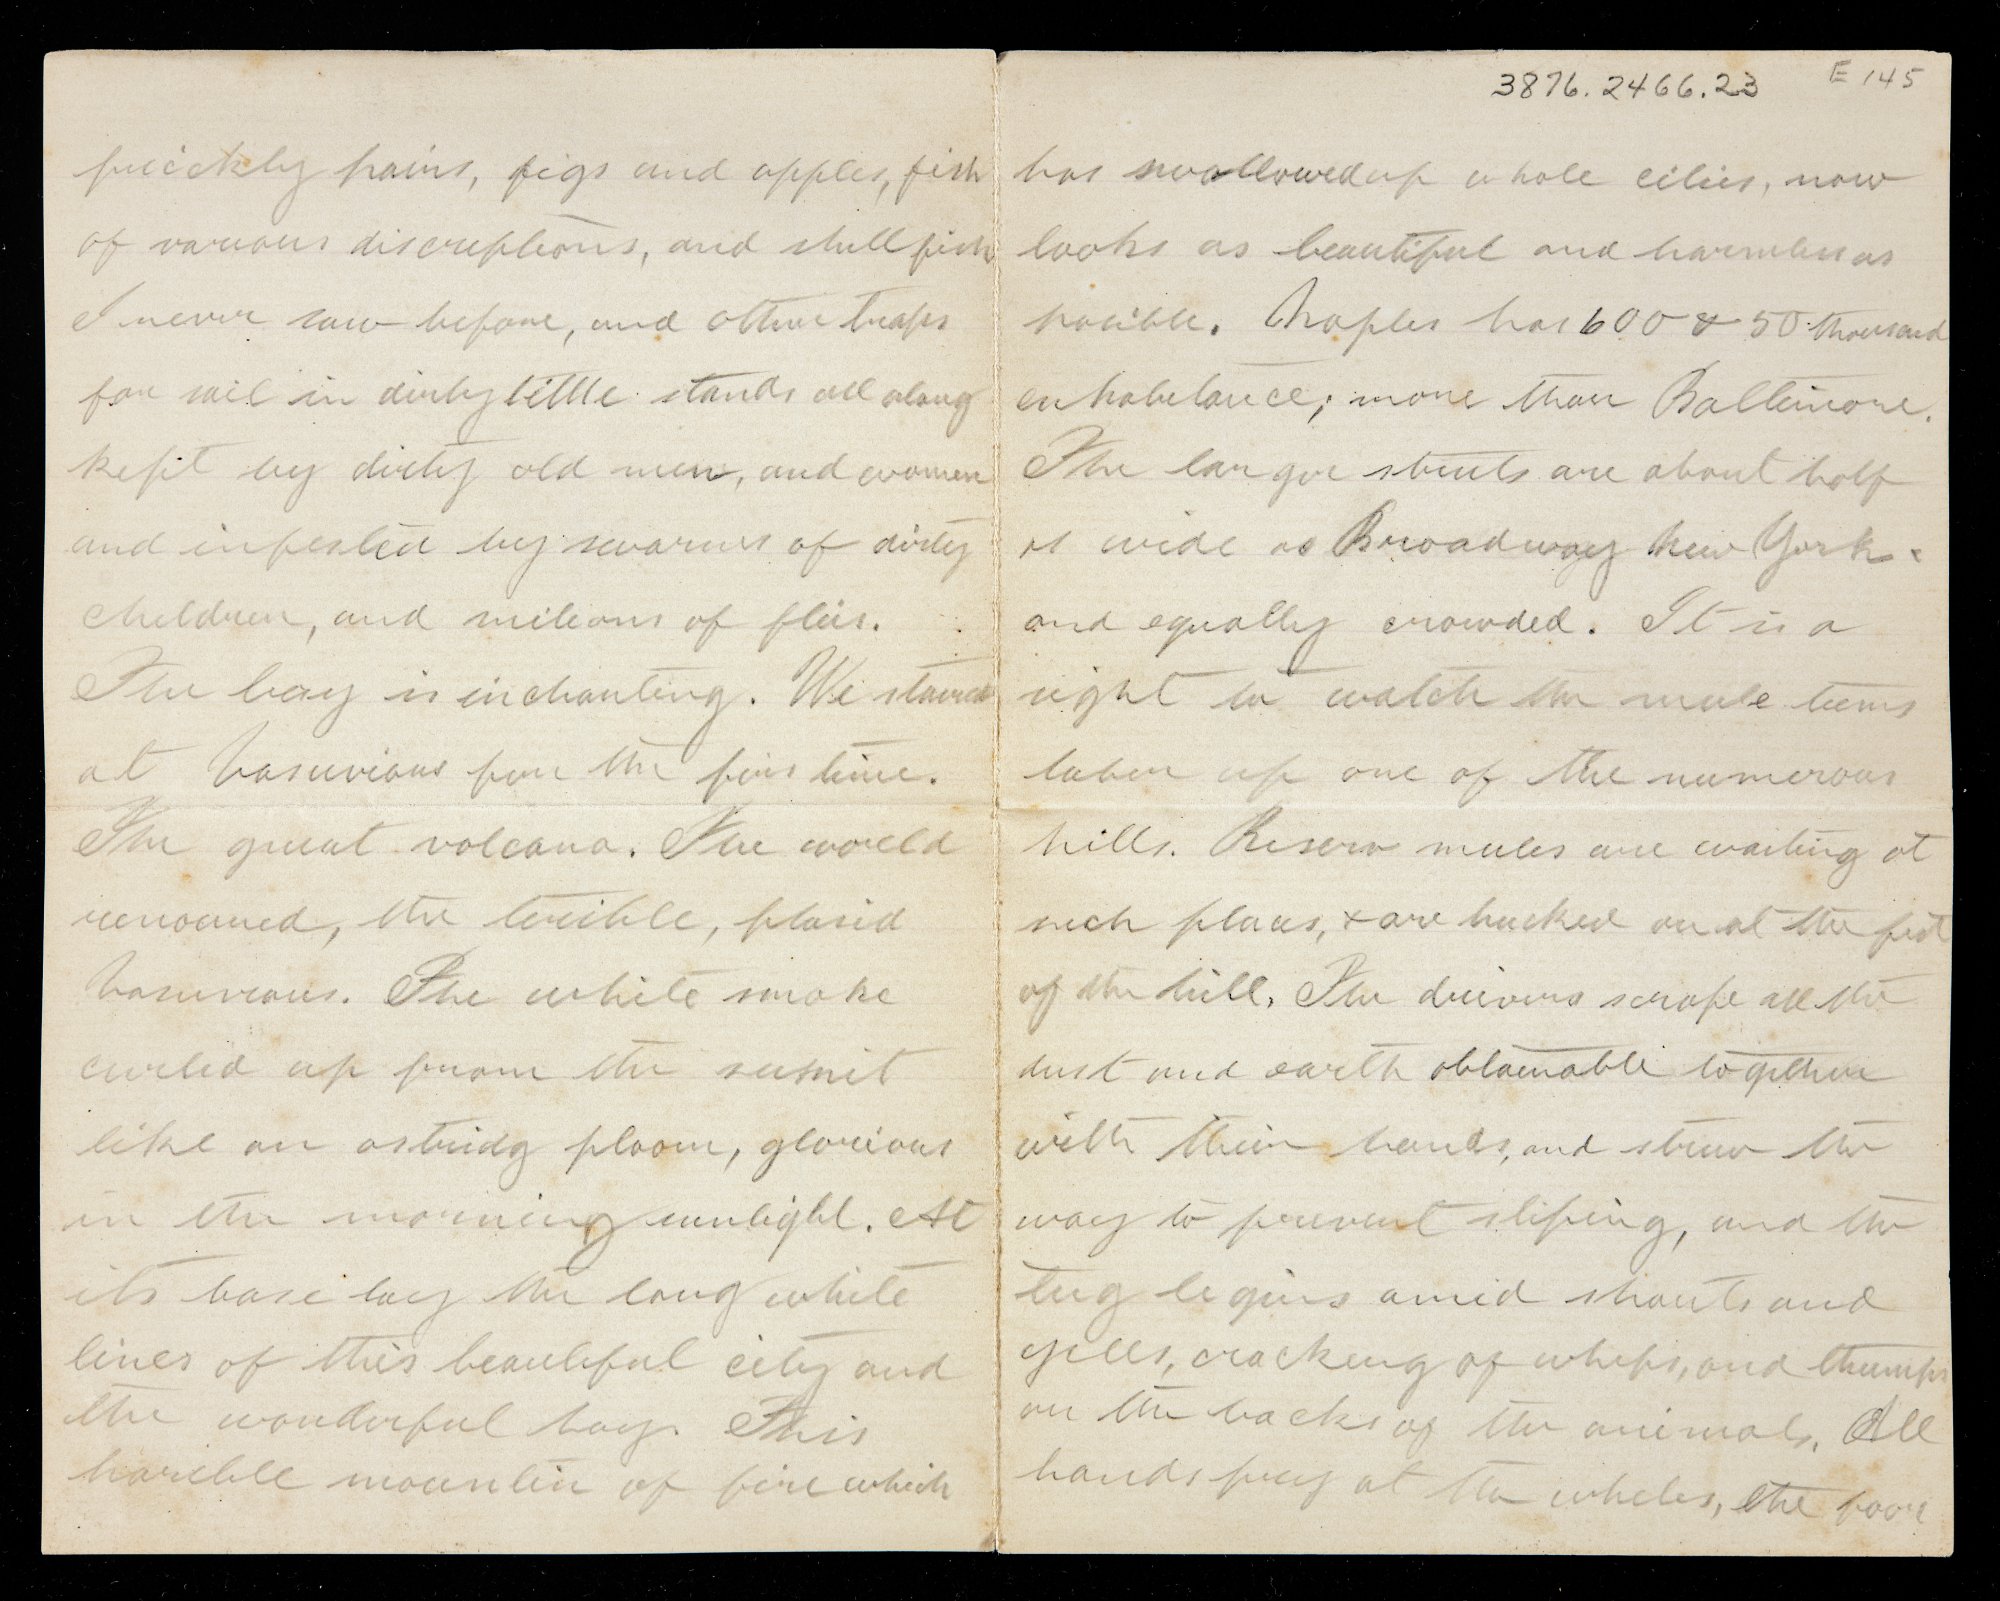 prickly pairs, figs and apples, fish
of varous discreptions, and shell fish
I never saw before, and other traps
for sail in dirty little stands all along
kept by dirty old men, and women
and infested by swarms of dirty
children, and milions of flies.
The bay is inchanting. We stared
at Vasuvious for the firs time.
The great volcano. The world
renowned, the terible, plasid
Vasuvious. The white smoke
curled up from the sumit
like an astridg ploom, glorious
in the morning sunlight. At
its base lay the long white
lines of this beautiful city and
the wonderful bay. This
horeble mountin of fire which
3876.2466.23 E 145
has swallowed up whole cities, now
looks as beautiful and harmless as
posible. Naples has 600 & 50 thousand
enhabetance; more than Baltimore.
The large streets are about half
as wide as Broadway New York.
and equally crowded. It is a
sight to watch the mule teems
labor up one of the numerous
hills. Reserv mules are waiting at
such places, & are hucked on at the foot
of the hill. The drivers scrape all the
dust and earth obtainable together
with their hands, and strew the
way to prevent sliping, and the
tug begins amid shouts and
yells, cracking of whips, and thumps
on the backs of the animals. All
hands pry at the wheles, the poor